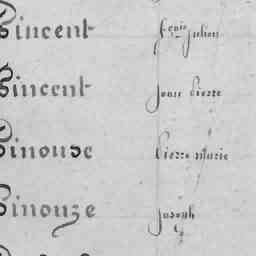 Vincent fçois Julien
Vincent Jean Pierre
Vinouse Pierre Marie
Vinouze Joseph